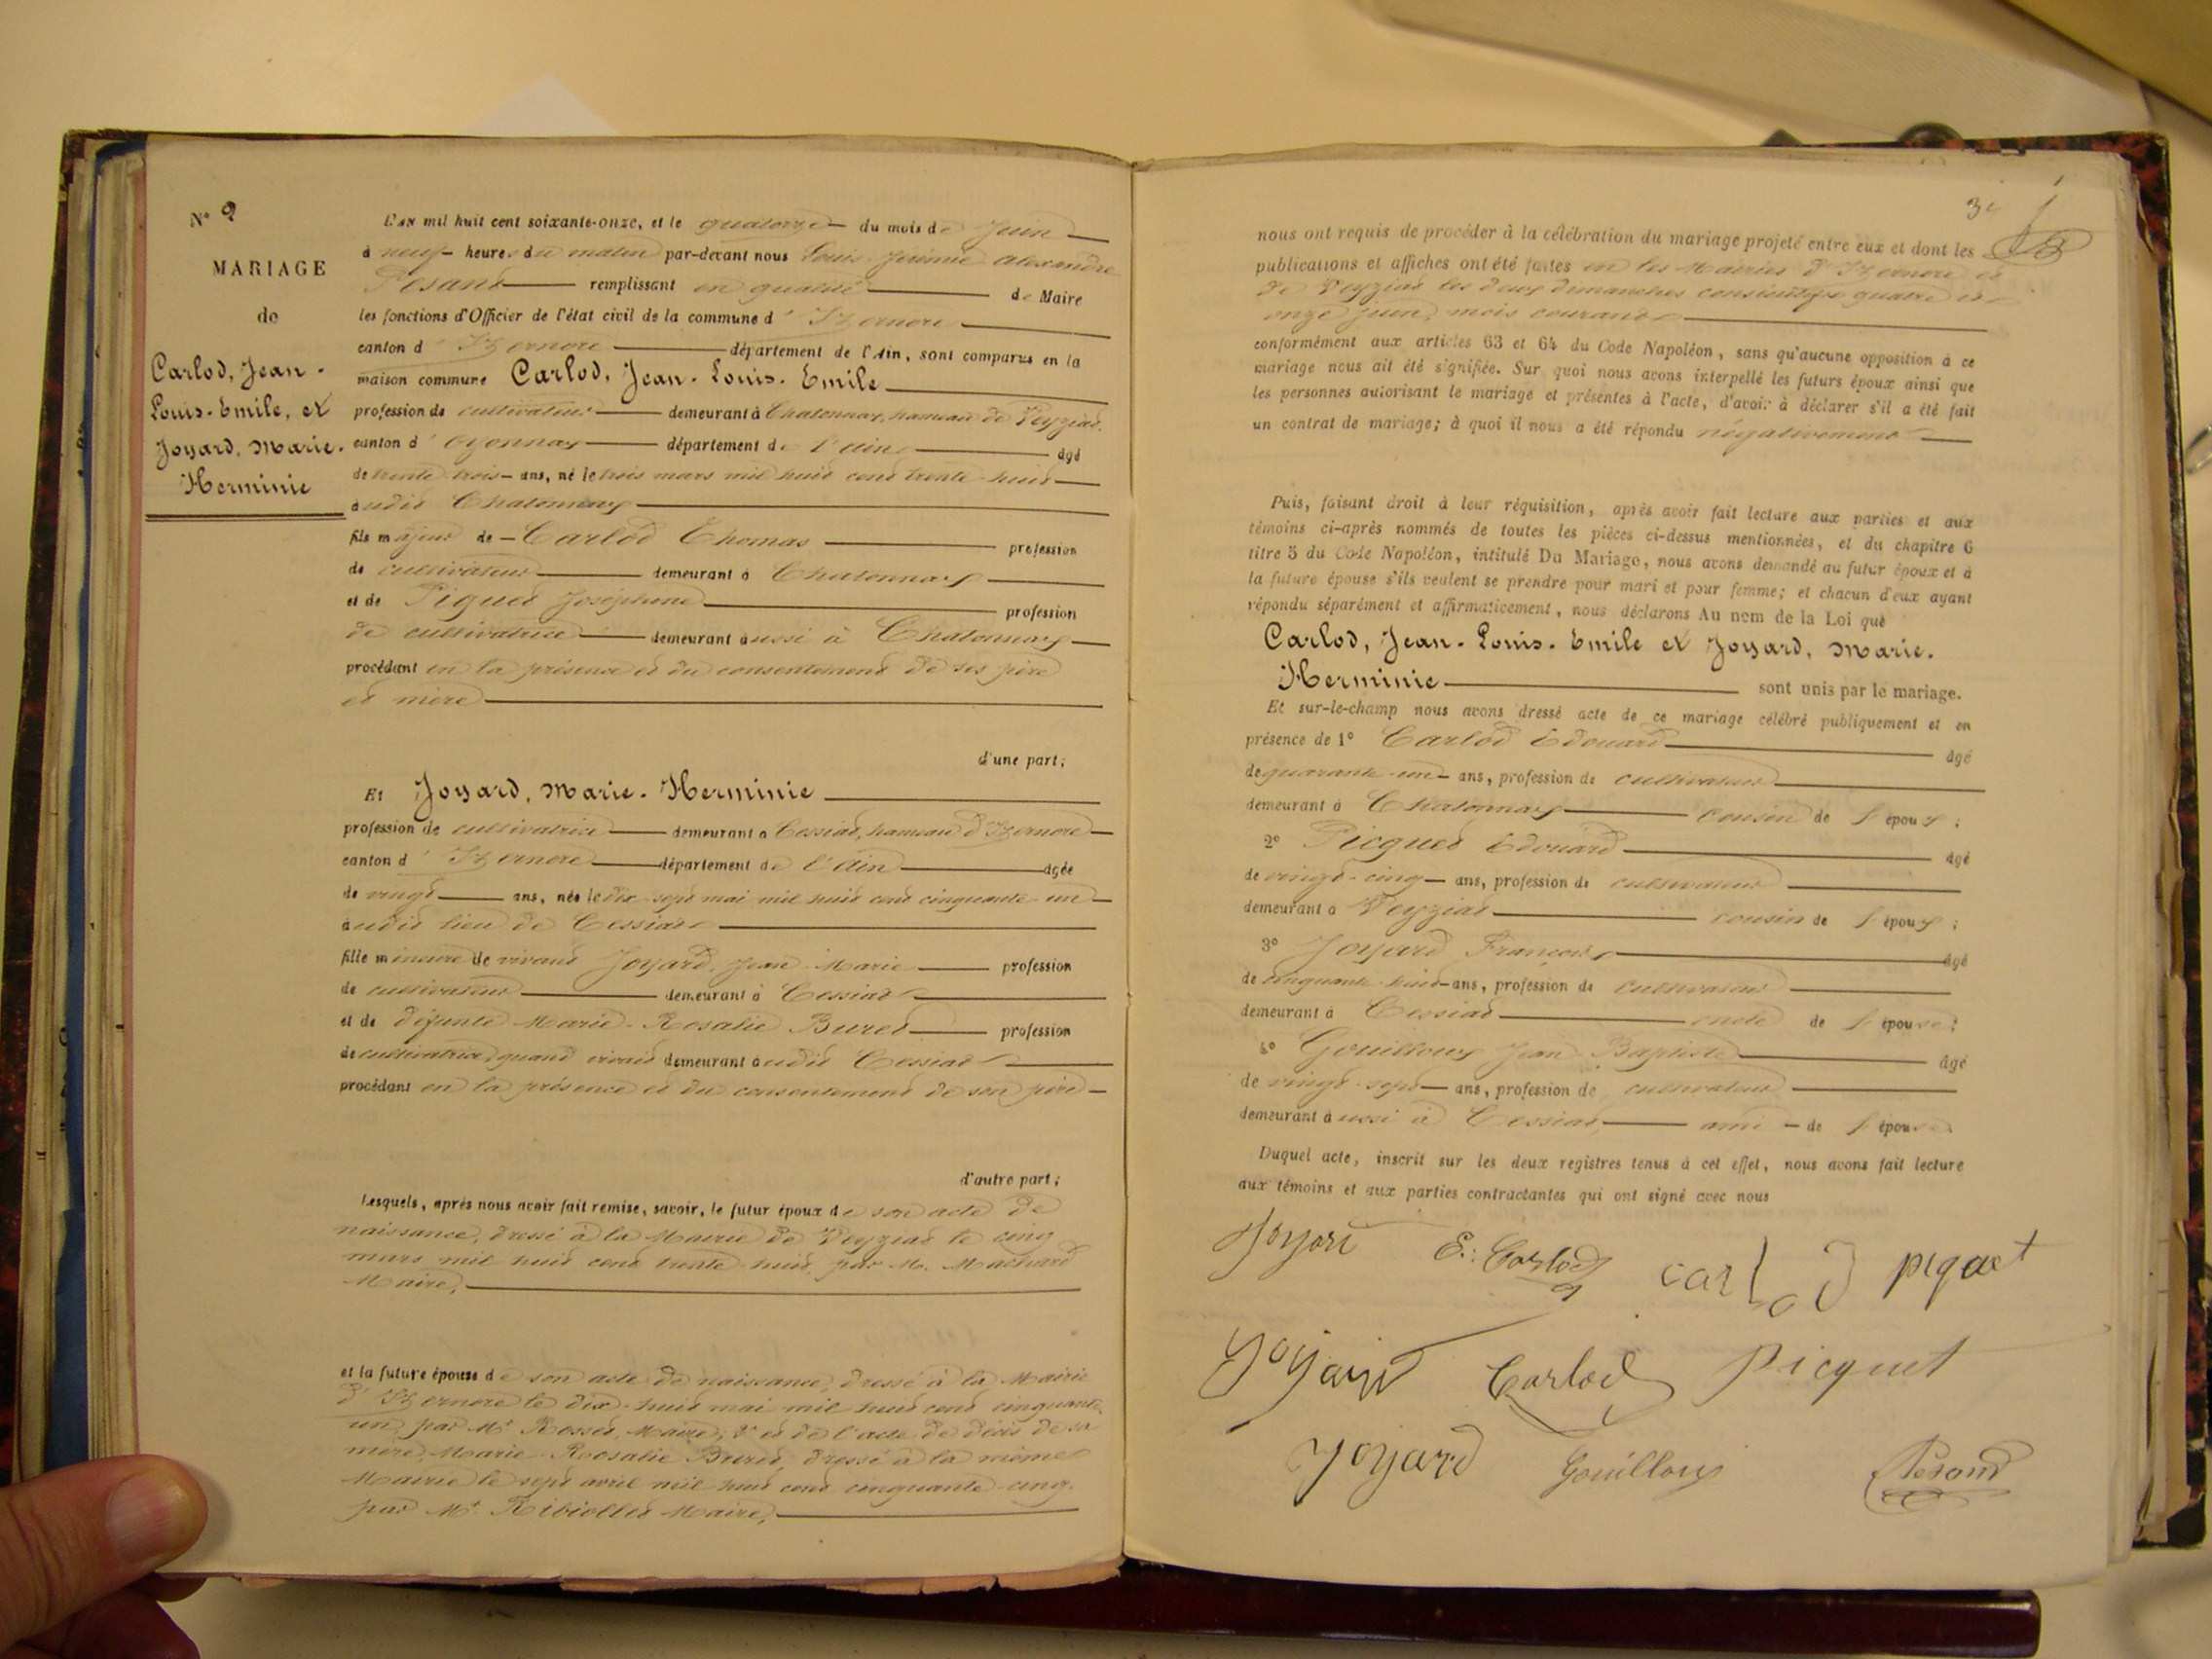 N° 2
MARIAGE
de
Carlod, Jean-
Louis-Emile, et
Joyard, Marie-
Herminie
L'AN mil huit cent soixante-onze, et le quatorze du mois de juin
à neuf heures du matin par-devant nous Louis Jérémie Alexandre
Pesant remplissant en qualité de Maire
les fonctions d'Officier de l'état civil de la commune d'Izernore
canton d'Izernore département de l'Ain, sont comparus en la
maison commune Carlod, Jean-Louis-Emile
profession de cultivateur demeurant à Chatonnax, hameau de Veyziat
canton d'Oyonnax département de l'Ain âgé
de trente trois ans, né le trois mars mil huit cent trente-huit
audit Chatonnax
fils majeur de Carlod Thomas profession
de cultivateur demeurant à Chatonnax
et de Piquet Joséphine profession
de cultivatrice demeurant aussi à Chatonnax
procédant en la présence et du consentement de ses père
et mère
d'une part;
Et Joyard, Marie-Herminie
profession de cultivatrice demeurant à Cessiat, hameau d'Izernore
canton d'Izernore département de l'Ain âgée
de vingt ans, née le dix-sept mai mil huit cent cinquante-un
audit lieu de Cessiat
fille mineure de vivant Joyard, Jean-Marie profession
de cultivateur demeurant à Cessiat
et de défunte Marie-Rosalie Buret profession
de cultivatrice quand vivait demeurant audit Cessiat
procédant en la présence et du consentement de son père
d'autre part;
Lesquels, après nous avoir fait remise, savoir, le futur époux de son acte de
naissance, dressé à la Mairie de Veyziat le cinq
mars mil huit cent trente-huit, par M.
Maire,
et la future épouse de son acte de naissance, dressé à la Mairie
d'Izernore le dix-huit mai mil huit cent cinquante
un par Mr Rosset, Maire; et de l'acte de décès de sa
mère, Marie Roosalie Buret, dressé à la même
Mairie le sept avril mil huit cent cinquante-cinq
par Mr Ribiollet Maire,
nous ont requis de procéder à la célébration du mariage projeté entre eux et dont les
publications et affiches ont été faites en les Mairies d'Izernore et
de Veyziat les deux dimanches consécutifs quatre et
onze juin, mois courant
conformément aux articles 63 et 64 du Code Napoléon, sans qu'aucune opposition à ce
mariage nous ait été signifiée. Sur quoi nous avons interpellé les futurs époux ainsi que
les personnes autorisant le mariage et présentes à l'acte, d'avoir à déclarer s'il a été fait
un contrat de mariage; à quoi il nous a été répondu négativement
Puis, faisant droit à leur réquisition, après avoir fait lecture aux parties et aux
témoins ci-après nommés de toutes les pièces ci-dessus mentionnées, et du chapitre 6
titre 5 du Code Napoléon, intitulé Du Mariage, nous avons demandé au futur époux et à
la future épouse s'ils veulent se prendre pour mari et pour femme; et chacun d'eux ayant
répondu séparément et affirmativement, nous déclarons Au nom de la Loi que
Carlod, Jean-Louis-Emile et Joyard, Marie-
Herminie sont unis par le mariage.
Et sur-le-champ nous avons dressé acte de ce mariage célébré publiquement et en
présence de 1° Carlod Edouard âgé
de quarante-un ans, profession de cultivateur
demeurant à Chatonnax cousin de l'époux;
2° Picquet Edouard âgé
de vingt-cinq ans, profession de cultivateur
demeurant à Veyziat cousin de l'époux;
3° Joyard François âgé
de cinquante-huit ans, profession de cultivateur
demeurant à Cessiat oncle de l'épouse;
4° Gouilloux Jean Baptiste âgé
de vingt-sept ans, profession de cultivateur
demeurant aussi à Cessiat ami de l'épouse
Duquel acte, inscrit sur les deux registres tenus à cet effet, nous avons fait lecture
aux témoins et aux parties contractantes qui ont signé avec nous
Joyard E. Carlod carlod piquet
Joyard Carlod Picquet
Joyard Gouilloux Pesant